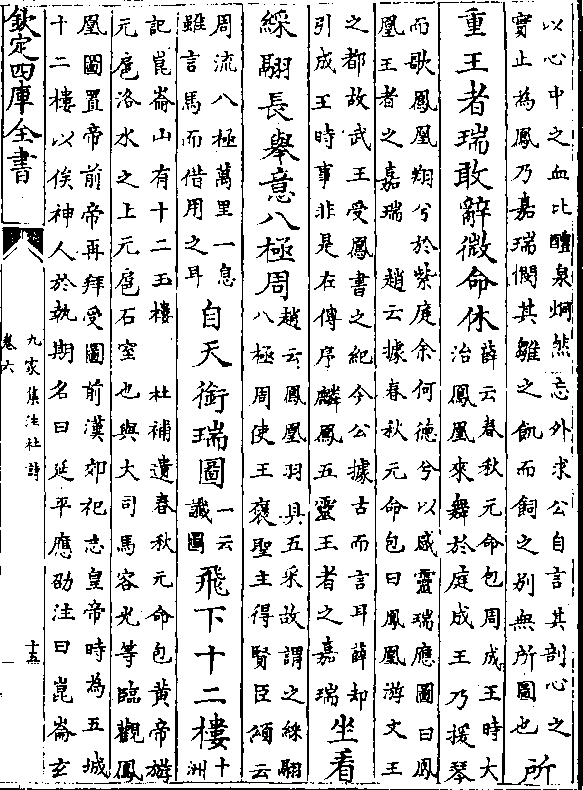 以心中之血比醴泉炯然忘外求公自言其剖心之
實止為鳳乃嘉瑞憫其雛之飢而飼之别無所圖也
所
重王者瑞敢辭微命休
薛云春秋元命包周成王時大
治鳳凰來舞於庭成王乃援琴
而歌鳳凰翔兮於紫庭余何德兮以感靈瑞應圖曰鳳
凰王者之嘉瑞 趙云據春秋元命包曰鳳凰游文王
之都故武王受鳳書之紀今公據古而言耳薛却
引成王時事非是在傳序麟鳳五靈王者之嘉瑞
坐看
綵翮長舉意八極周
趙云鳳凰羽具五采故謂之綵翮
八極周使王褒聖主得賢臣頌云
周流八極萬里一息
雖言馬而借用之耳
自天銜瑞圖
一云
讖圖
飛下十二樓
十
洲
記崑崙山有十二玉樓 杜補遺春秋元命包黄帝游
元扈洛水之上元扈石室也與大司馬容光等臨觀鳳
凰圖置帝前帝再拜受圖前漢郊祀志皇帝時為五城
十二樓以俟神人於執期名曰延平應劭注曰崑崙玄
欽定四庫全書
九家集注杜詩
卷六
十五